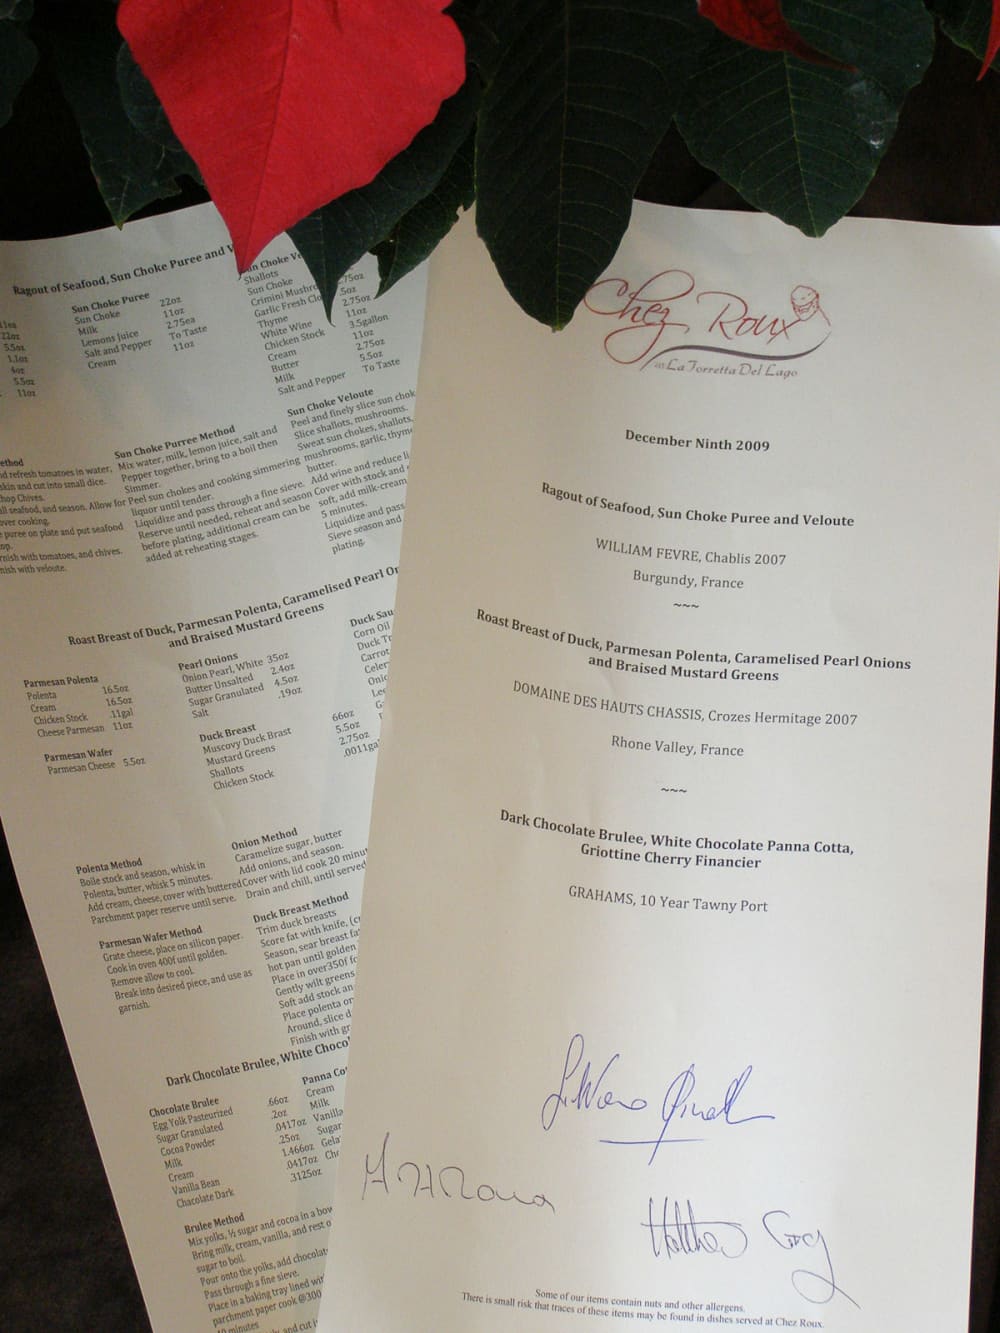 Ragout of Seafood, Sun Choke Puree and
Sun Choke Puree
Sun Choke 22oz
Milk 11oz
Lemons Juice 2.75ea
Salt and Pepper To Taste
Cream 11oz
22oz
5.5oz
1.1oz
4oz
5.5oz
11oz
Shallots
Sun Choke
Crimini
Garlic Fresh
Thyme
White Wine
Chicken Stock
Cream
Butter
Milk
Salt and Pepper
.75oz
5oz
2.75oz
11oz
3.5gallon
11oz
2.75oz
5.5oz
To Taste
refresh tomatoes in water,
skin and cut into small dice.
Chives.
seafood, and season. Allow for
over cooking.
puree on plate and put seafood
with tomatoes, and chives.
with veloute.
Sun Choke Purree Method
Mix water, milk, lemon juice, salt and
Pepper together, bring to a boil then
Simmer.
Peel sun chokes and cooking simmering
liquor until tender.
Liquidize and pass through a fine sieve.
Reserve until needed, reheat and season
before plating, additional cream can be
added at reheating stages.
Sun Choke Veloute
Peel and finely slice sun
Slice shallots, mushrooms.
Sweat sun chokes, shallots,
mushrooms, garlic,
butter.
Add wine and reduce
Cover with stock and
soft, add milk-cream
5 minutes.
Liquidize and pass
Sieve season and
plating.
Roast Breast of Duck, Parmesan Polenta, Caramelised Pearl
and Braised Mustard Greens
Parmesan Polenta
Polenta 16.5oz
Cream 16.5oz
Chicken Stock .11gal
Cheese Parmesan 11oz
Parmesan Wafer
Parmesan Cheese 5.5oz
Pearl Onions
Onion Pearl, White 35oz
Butter Unsalted 2.4oz
Sugar Granulated 4.5oz
Salt .19oz
Duck Breast
Muscovy Duck Brast 66oz
Mustard Greens 5.5oz
Shallots 2.75oz
Chicken Stock
Duck
Corn Oil
Duck
Carrot
Polenta Method
Boile stock and season, whisk in
Polenta, butter, whisk 5 minutes.
Add cream, cheese, cover with buttered
Parchment paper reserve until serve.
Parmesan Wafer Method
Grate cheese, place on silicon paper.
Cook in oven 400f until golden.
Remove allow to cool.
Break into desired piece, and use as
garnish.
Onion Method
Caramelize sugar, butter
Add onions, and season.
Cover with lid cook 20
Drain and chill, until served
Duck Breast Method
Trim duck breasts
Score fat with knife,
Season, sear breast
hot pan until golden
Place in over350f
Gently wilt greens
Soft add stock
Place polenta
Around, slice
Finish with
Dark Chocolate Brulee, White
Chocolate Brulee
Egg Yolk Pasteurized .66oz
Sugar Granulated .2oz
Cocoa Powder .0417oz
Milk .25oz
Cream 1.466oz
Vanilla Bean .0417oz
Chacolate Dark .3125oz
Panna
Cream
Milk
Vanilla
Sugar
Brulee Method
Mix yolks, ½ sugar and cocoa in a
Bring milk, cream, vanilla, and rest
sugar to boil.
Pour onto the yolks, add
Pass through a fine sieve.
Place in a baking tray lined
parchment paper cook @300
minutes
Chez Roux
at La Torretta Del Lago
December Ninth 2009
Ragout of Seafood, Sun Choke Puree and Veloute
WILLIAM FEVRE, Chablis 2007
Burgundy, France
~~~
Roast Breast of Duck, Parmesan Polenta, Caramelised Pearl Onions
and Braised Mustard Greens
DOMAINE DES HAUTS CHASSIS, Crozes Hermitage 2007
Rhone Valley, France
~~~
Dark Chocolate Brulee, White Chocolate Panna Cotta,
Griottine Cherry Financier
GRAHAMS, 10 Year Tawny Port
Some of our items contain nuts and other allergens.
There is small risk that traces of these items may be found in dishes served at Chez Roux.